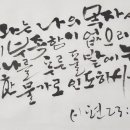 와는 나의 목자
부족함이 없으리
나를 푸른 풀밭에
한 물가로 인도하시
시편 23